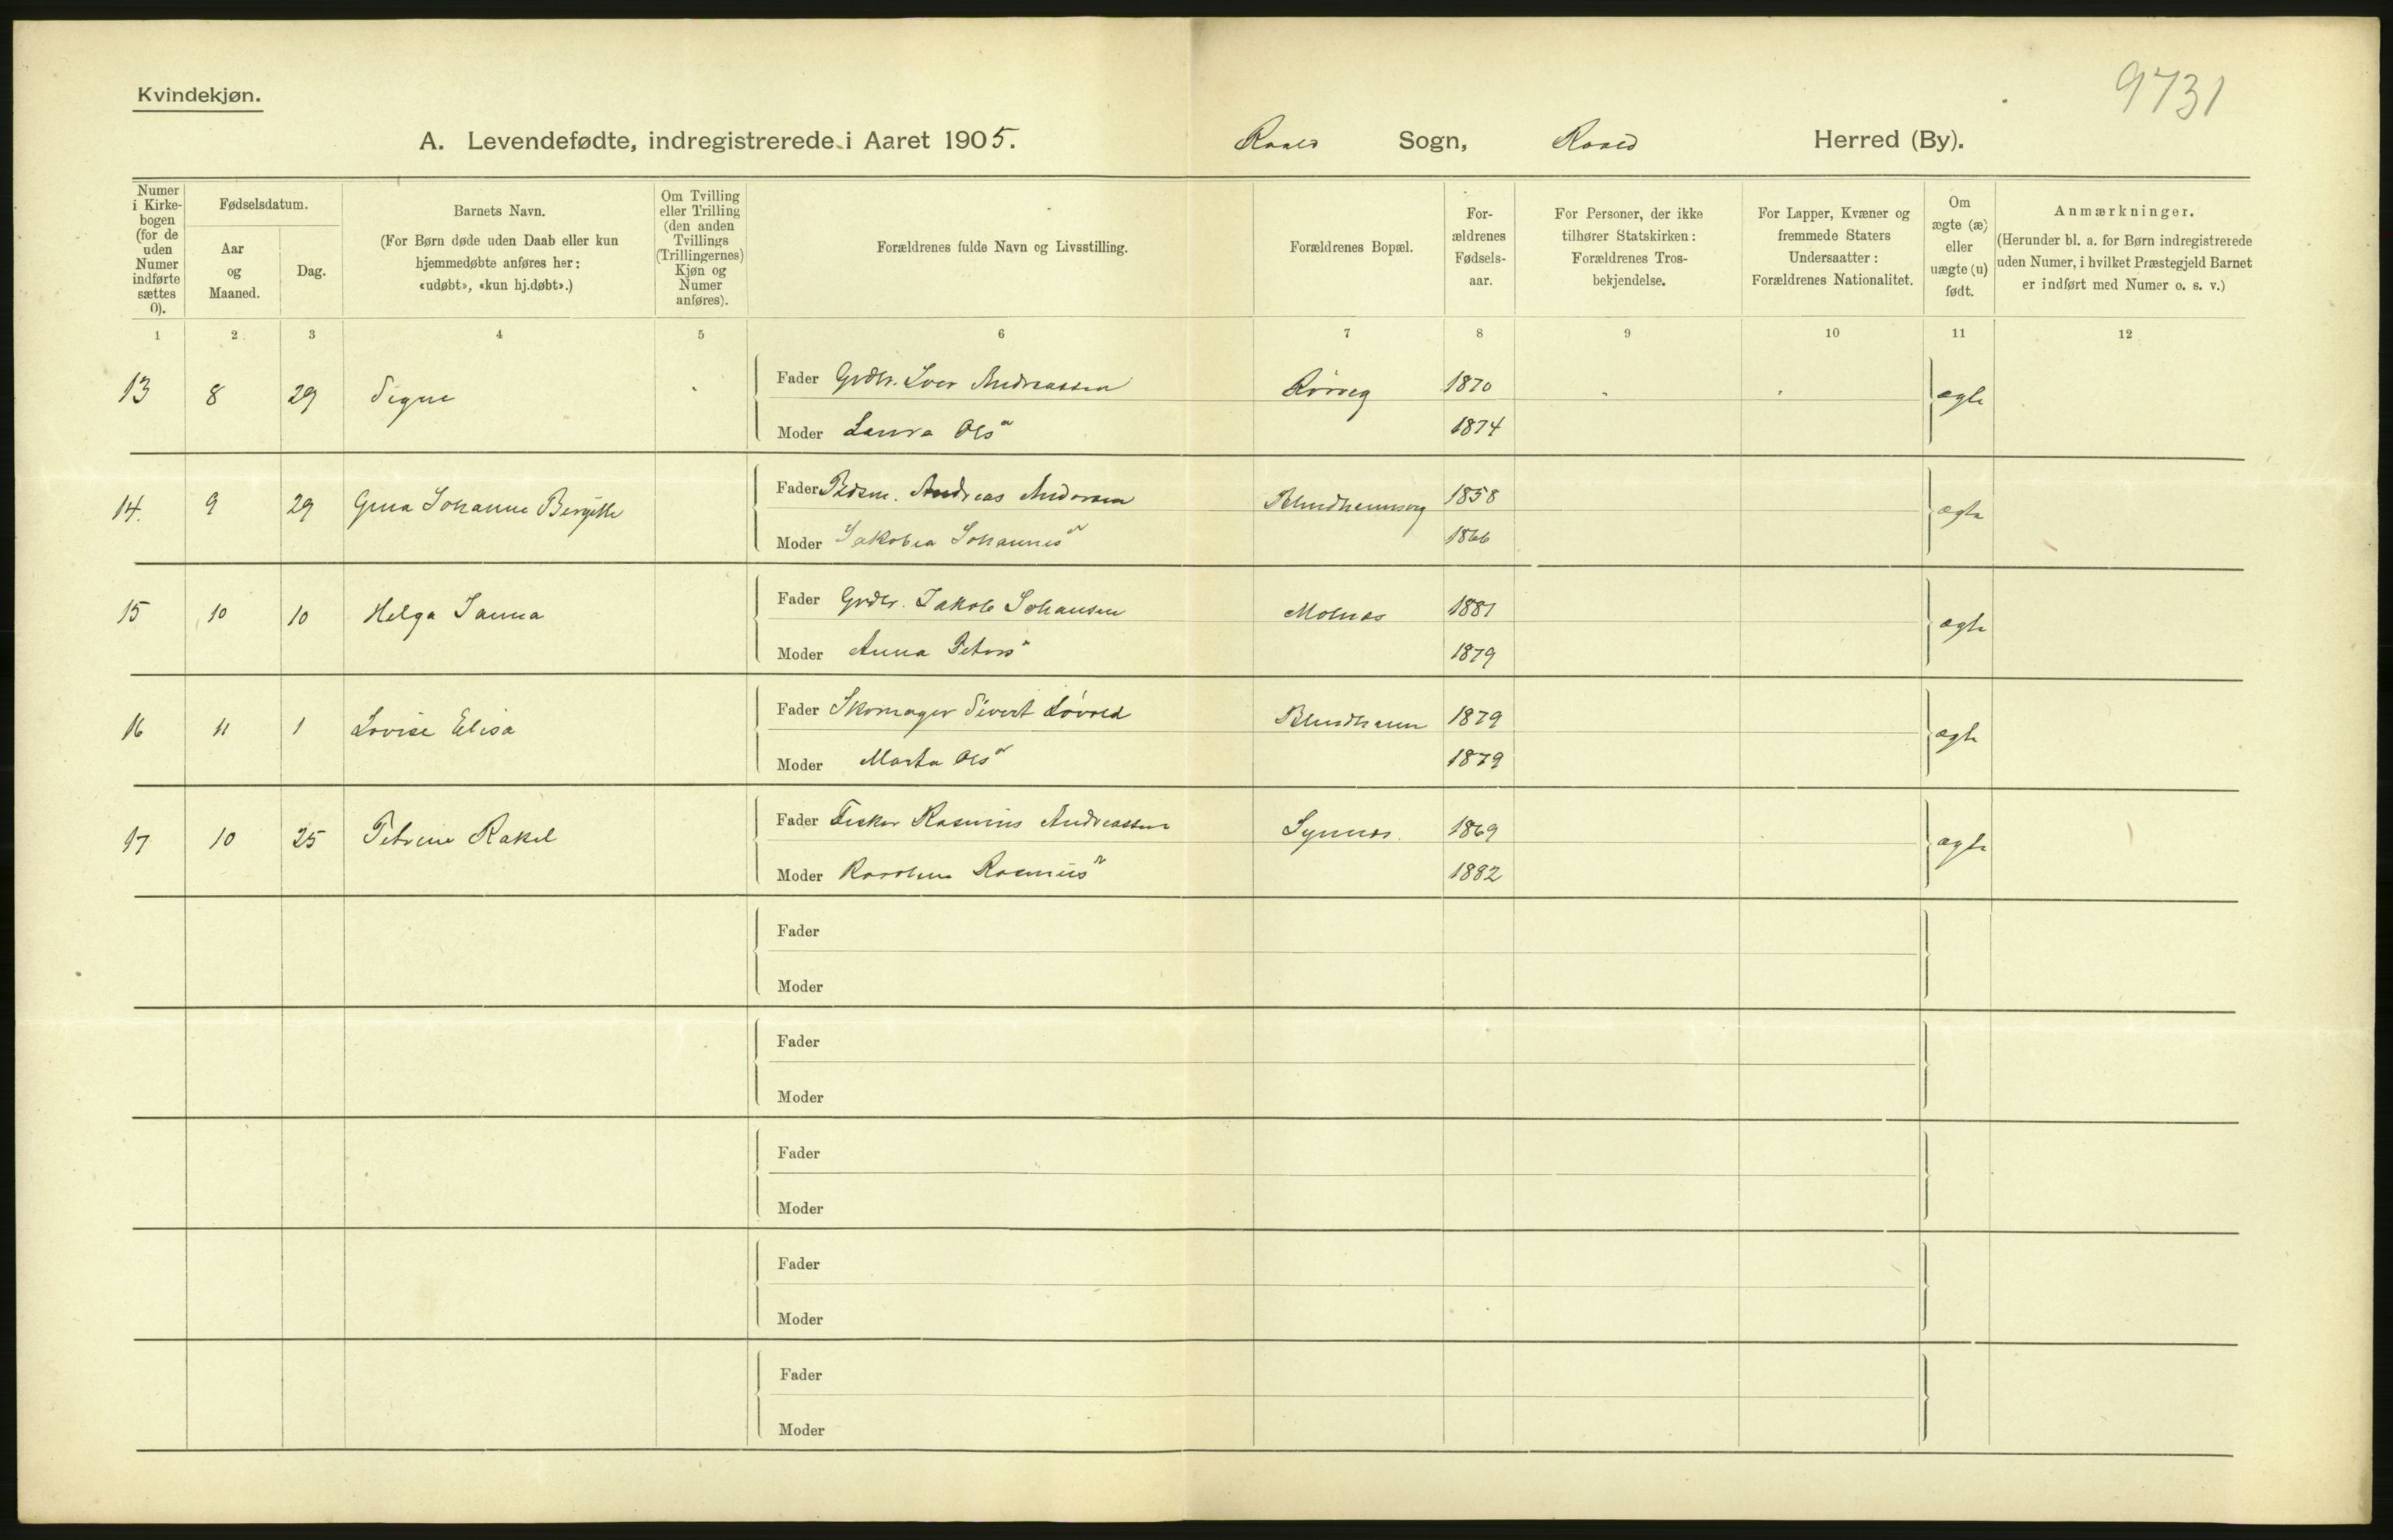 Kvindekjøn.
9731
A. Levendefødte, indregistrerede i Aaret 1905. Roald Sogn, Roald Herred (By).
Numer i Kirkebogen (for de uden Numer indførte sættes 0).
Fødselsdatum.
Aar og Maaned.
Dag.
Barnets Navn.
(For Børn døde uden Daab eller kun hjemmedøbte anføres her: «udøbt», «kun hj.døbt».)
Om Tvilling eller Trilling (den anden Tvillings (Trillingernes) Kjøn og Numer anføres).
Forældrenes fulde Navn og Livsstilling.
Forældrenes Bopæl.
Forældrenes Fødselsaar.
For Personer, der ikke tilhører Statskirken: Forældrenes Trosbekjendelse.
For Lapper, Kvæner og fremmede Staters Undersaatter: Forældrenes Nationalitet.
Om ægte (æ) eller uægte (u) født.
Anmærkninger.
(Herunder bl. a. for Børn indregistrerede uden Numer, i hvilket Præstegjeld Barnet er indført med Numer o. s. v.)
1 2 3 4 5 6 7 8 9 10 11 12
13 8 29 Signe Fader Grdbr. Iver Andreassen Rørvig 1870 ægte
Moder Laura Ols 1874
14. 9 29 Gina Johanne Bergitte Fader Andreas Andersen 1858 ægte
Moder Jakobea Johannes 1866
15 10 10 Helga Janna Fader Grdbr. Jakob Johansen Molnes 1881 ægte
Moder Anna Peters 1879
16 11 1 Lovise Elisa Fader Skomager Sivert Løvold Blindheim 1879 ægte
Moder Marta Ols 1879
17 10 25 Petrine Rakel Fader Fisker Rasmus Andreassen Synnes. 1869 ægte
Moder Karoline Rasmus 1882
Fader
Moder
Fader
Moder
Fader
Moder
Fader
Moder
Fader
Moder